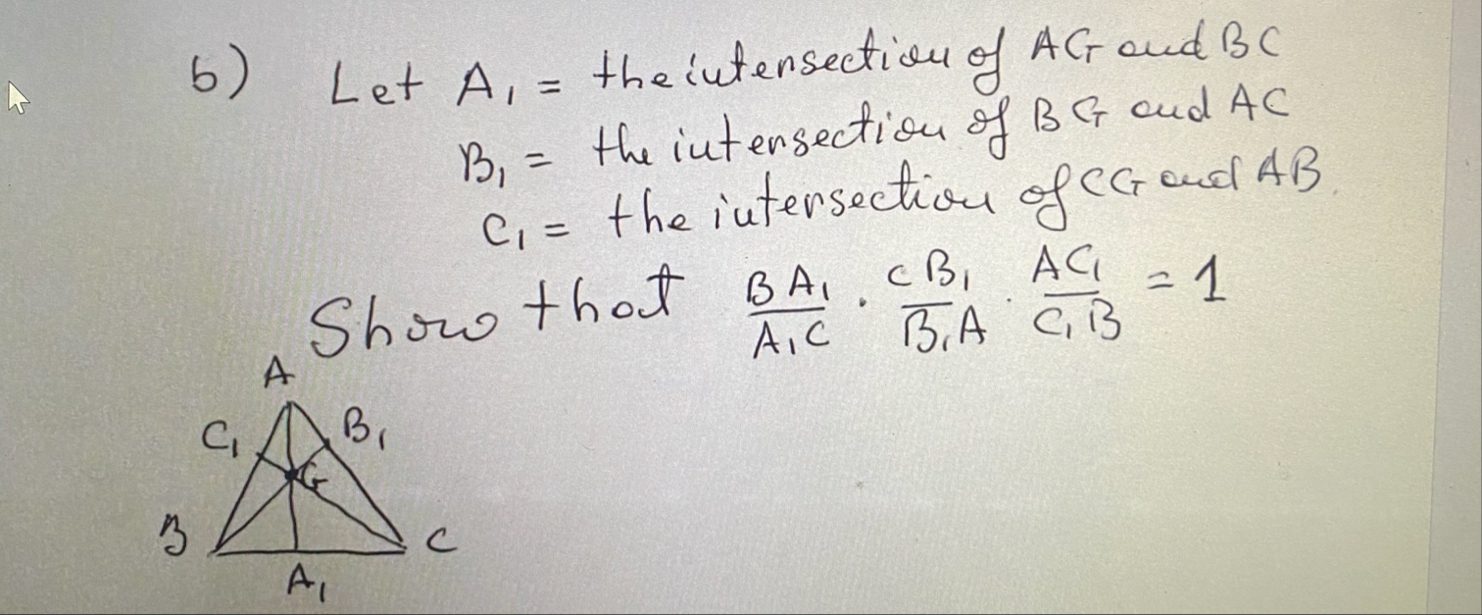 b) Let A₁ = the intersection of AG and BC
B₁ = the intersection of BG and AC
C₁ = the intersection of CG and AB.
Show that BA₁/A₁C · CB₁/B₁A · AC₁/C₁B = 1
A
C₁ B₁
G
B C
A₁